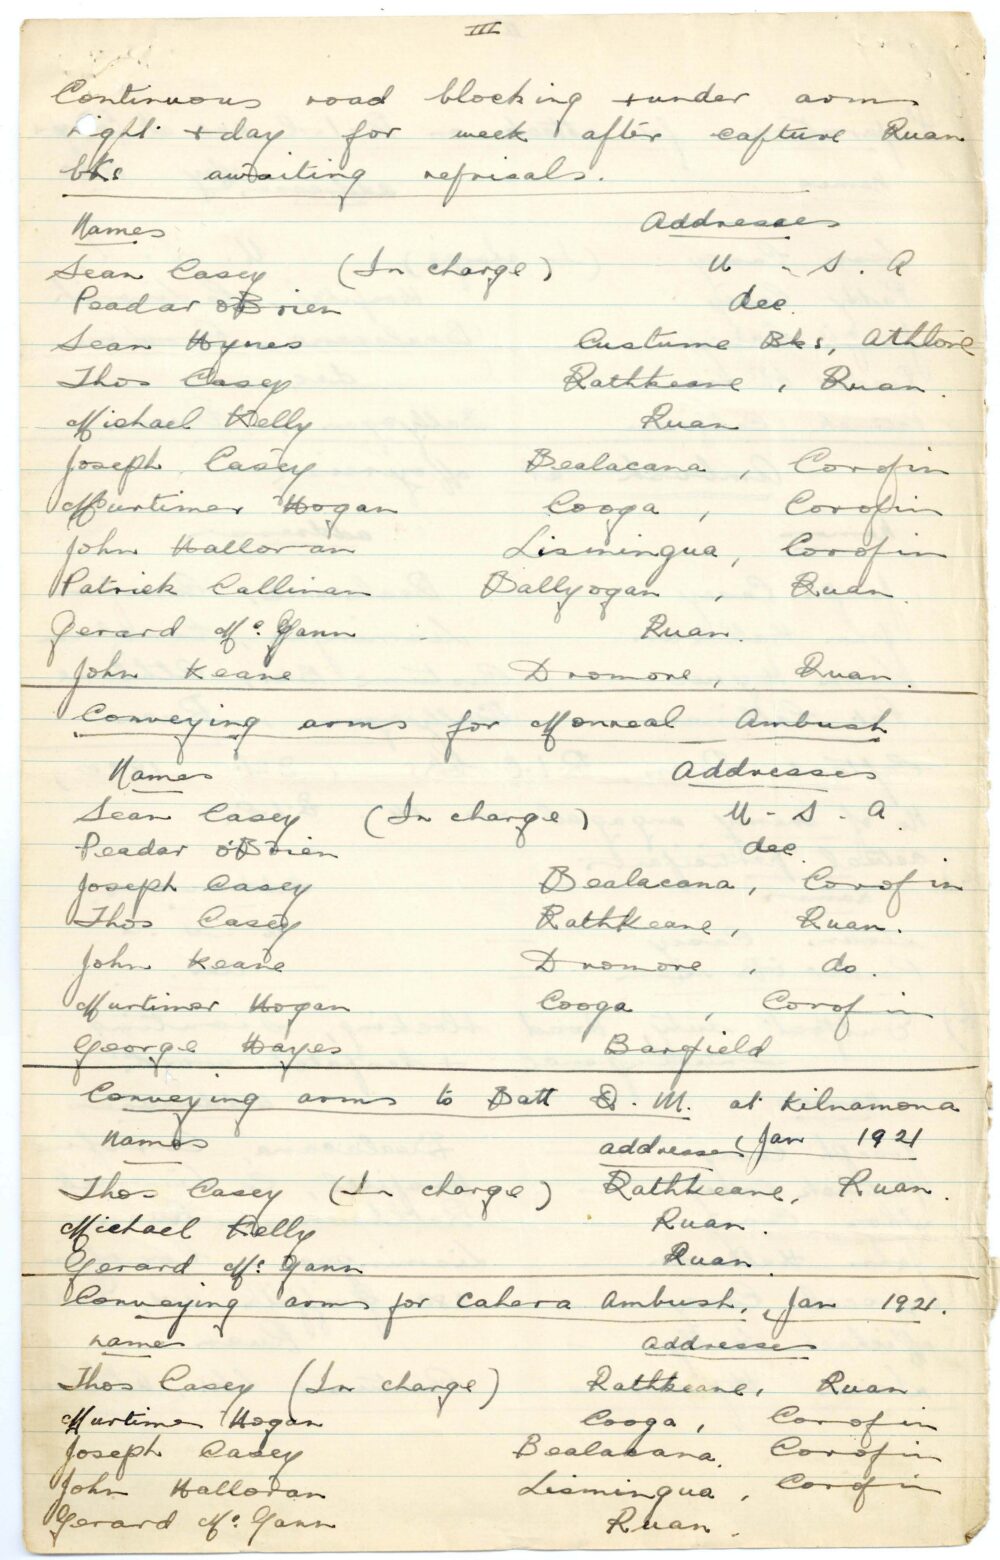 III
Continuous road blocking + under arms
night + day for week after capture Ruan
bks awaiting reprisals.
Names Addresses
Sean Casey (In charge) U - S. A
Peadar O'Brien dec.
Sean Hynes Custume Bks, Athlone
Thos Casey Rathkeane, Ruan.
Michael Kelly Ruan
Joseph Casey Bealacana, Corofin
Murtimer Hogan Cooga, Corofin
John Halloran Lismingua, Corofin
Patrick Callinan Ballyogan, Ruan.
Gerard Mc. Gann Ruan.
John Keane Dromore, Ruan.
Conveying arms for Monreal Ambush
Names Addresses
Sean Casey (In charge) U - S - A.
Peadar O'Brien dec.
Joseph Casey Bealacana, Corofin
Thos Casey Rathkeane, Ruan.
John Keane Dromore, do.
Murtimer Hogan Cooga, Corofin
George Hayes Barefield
Conveying arms to Batt Q. M. at Kilnamona
Names addresses Jan 1921
Thos Casey (In charge) Rathkeane, Ruan.
Michael Kelly Ruan.
Gerard Mc. Gann Ruan.
Conveying arms for Cahera Ambush, Jan 1921.
names addresses
Thos Casey (In charge) Rathkeane, Ruan
Murtimer Hogan Cooga, Corofin
Joseph Casey Bealacana, Corofin
John Halloran Lismingua, Corofin
Gerard Mc. Gann Ruan.